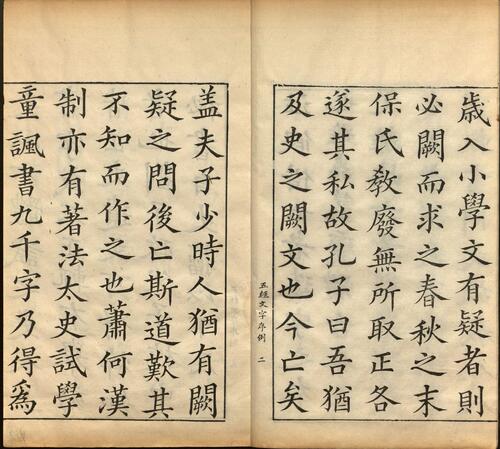 歳入小學文有疑者則
必闕而求之春秋之末
保氏敎廢無所取正各
遂其私故孔子曰吾猶
及史之闕文也今亡矣
五經文字序例 二
盖夫子少時人猶有闕
疑之問後亡斯道歎其
不知而作之也蕭何漢
制亦有著法太史試學
童諷書九千字乃得爲